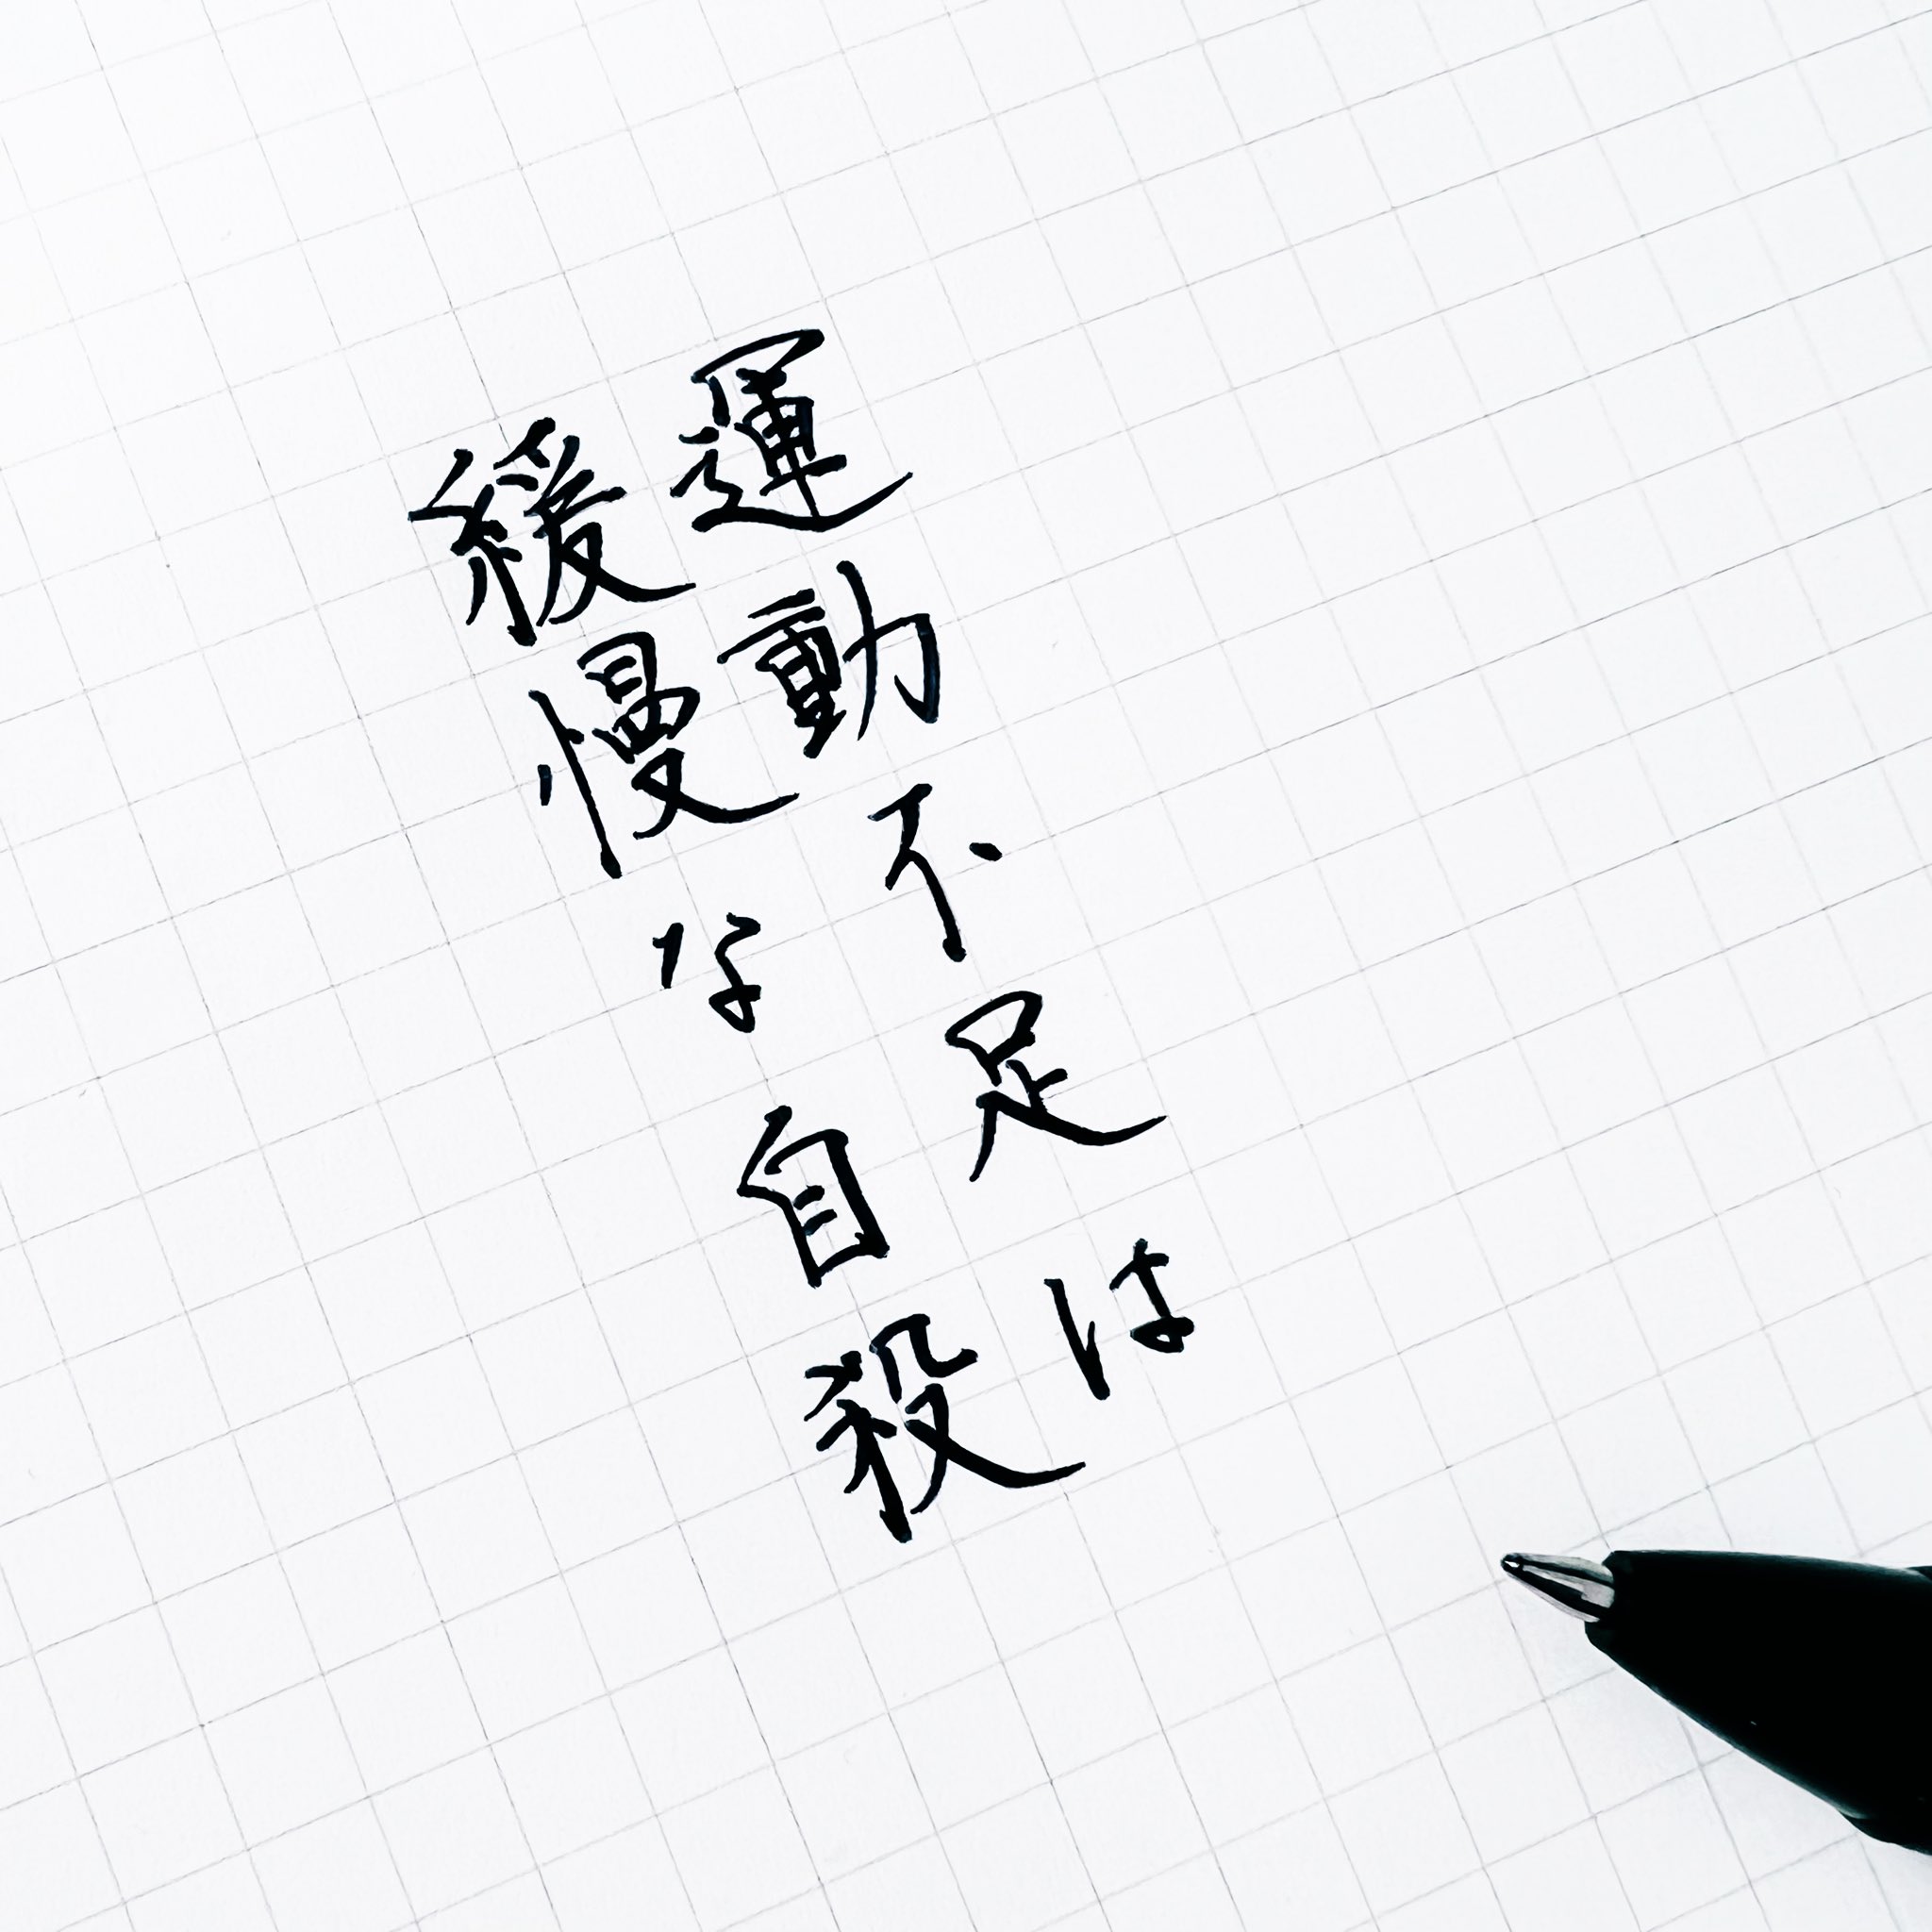 運動不足は
緩慢な自殺